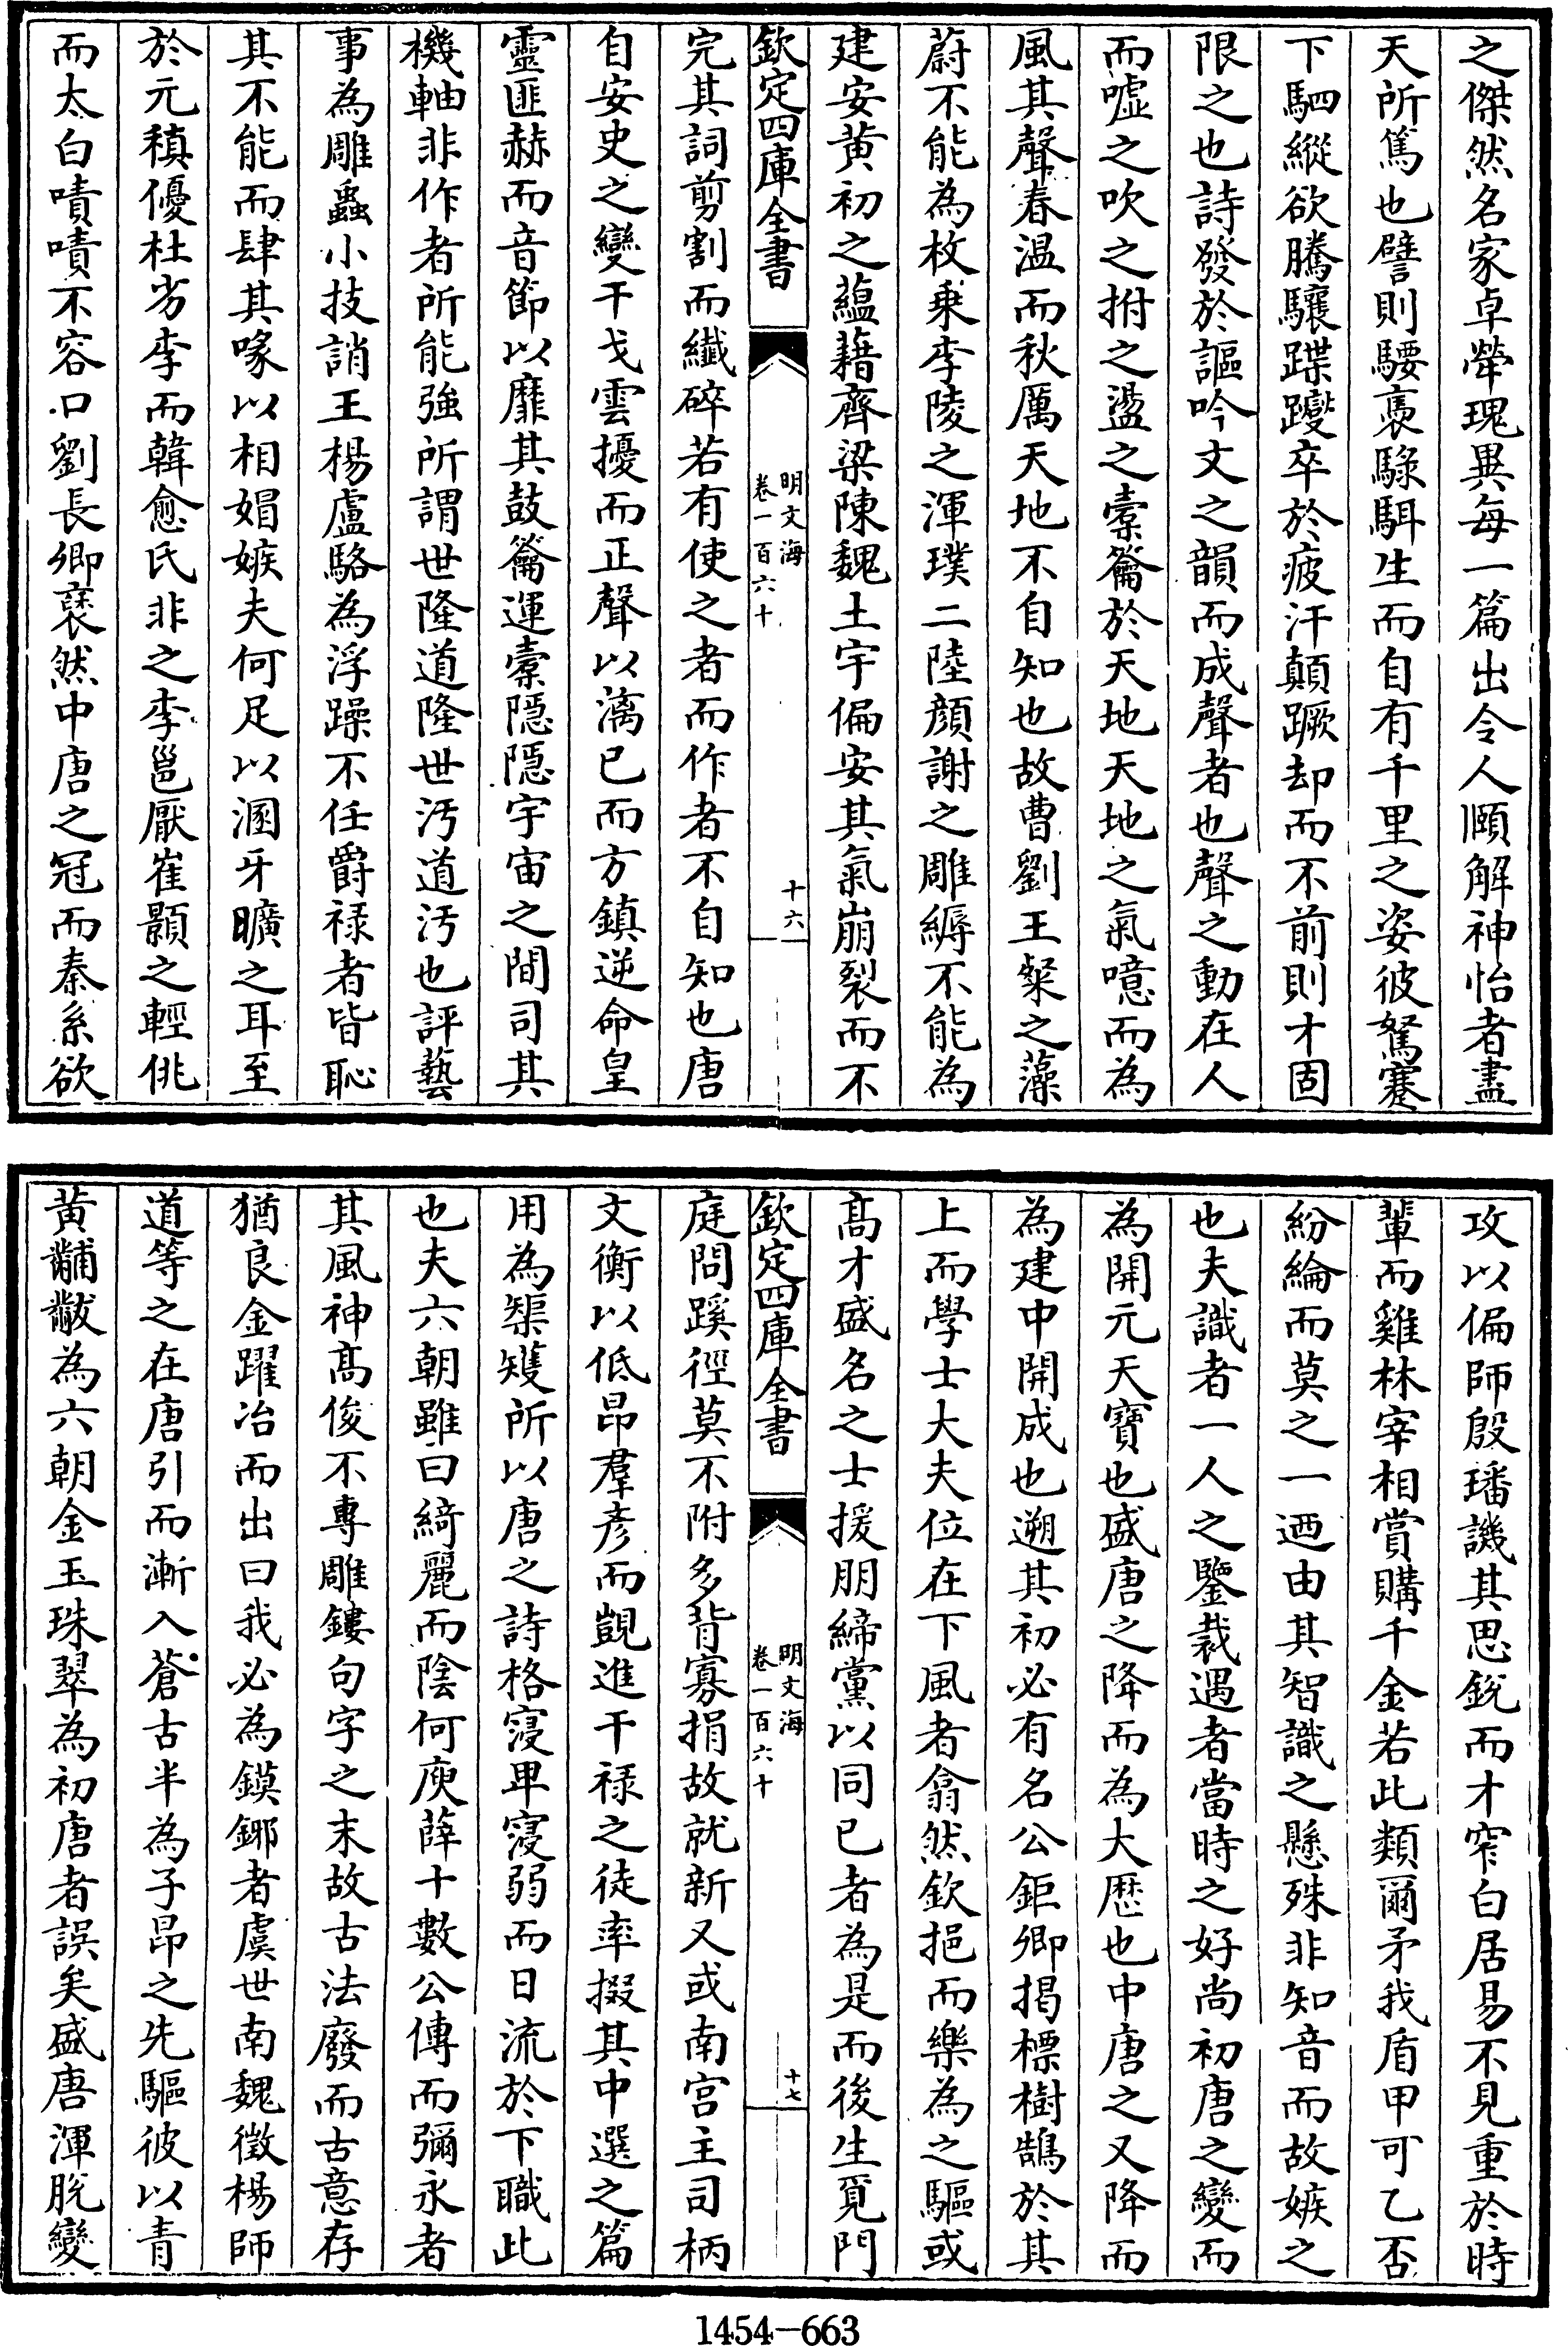 之傑然名家卓犖瑰異每一篇出令人頤解神怡者盡
天所篤也譬則騕褭騄駬生而自有千里之姿彼駑蹇
下駟縱欲騰驤蹀躞卒於疲汗顛蹶却而不前則才固
限之也詩發於謳吟文之韻而成聲者也聲之動在人
而噓之吹之拊之盪之橐籥於天地天地之氣噫而為
風其聲春温而秋厲天地不自知也故曹劉王粲之藻
蔚不能為枚乗李陵之渾璞二陸顔謝之雕縟不能為
建安黄初之藴藉齊梁陳魏土宇偏安其氣崩裂而不
欽定四庫全書
明文海
卷一百六十
十六
完其詞剪割而纖碎若有使之者而作者不自知也唐
自安史之變干戈雲擾而正聲以漓已而方鎮逆命皇
靈匪赫而音節以靡其鼓籥運橐隠隠宇宙之間司其
機軸非作者所能強所謂世隆道隆世汚道汚也評藝
事為雕蟲小技誚王楊盧駱為浮躁不任爵禄者皆恥
其不能而肆其喙以相媢嫉夫何足以溷牙曠之耳至
於元稹優杜劣李而韓愈氏非之李邕厭崔顥之輕佻
而太白嘖嘖不容口劉長卿裦然中唐之冠而秦系欲
攻以偏師殷璠譏其思銳而才窄白居易不見重於時
輩而雞林宰相賞購千金若此類爾矛我盾甲可乙否
紛綸而莫之一迺由其智識之懸殊非知音而故嫉之
也夫識者一人之鑒裁遇者當時之好尚初唐之變而
為開元天寶也盛唐之降而為大厯也中唐之又降而
為建中開成也遡其初必有名公鉅卿掲標樹鵠於其
上而學士大夫位在下風者翕然欽挹而樂為之驅或
髙才盛名之士援朋締黨以同已者為是而後生覓門
欽定四庫全書
明文海
卷一百六十
十七
庭問蹊徑莫不附多背寡捐故就新又或南宫主司柄
文衡以低昂羣彦而覬進干禄之徒率掇其中選之篇
用為榘矱所以唐之詩格寖卑寖弱而日流於下職此
也夫六朝雖曰綺麗而陰何庾薛十數公傳而彌永者
其風神髙俊不專雕鏤句字之末故古法廢而古意存
猶良金躍冶而出曰我必為鏌鋣者虞世南魏徵楊師
道等之在唐引而漸入蒼古半為子昂之先驅彼以青
黄黼黻為六朝金玉珠翠為初唐者誤矣盛唐渾脱變
1454—663